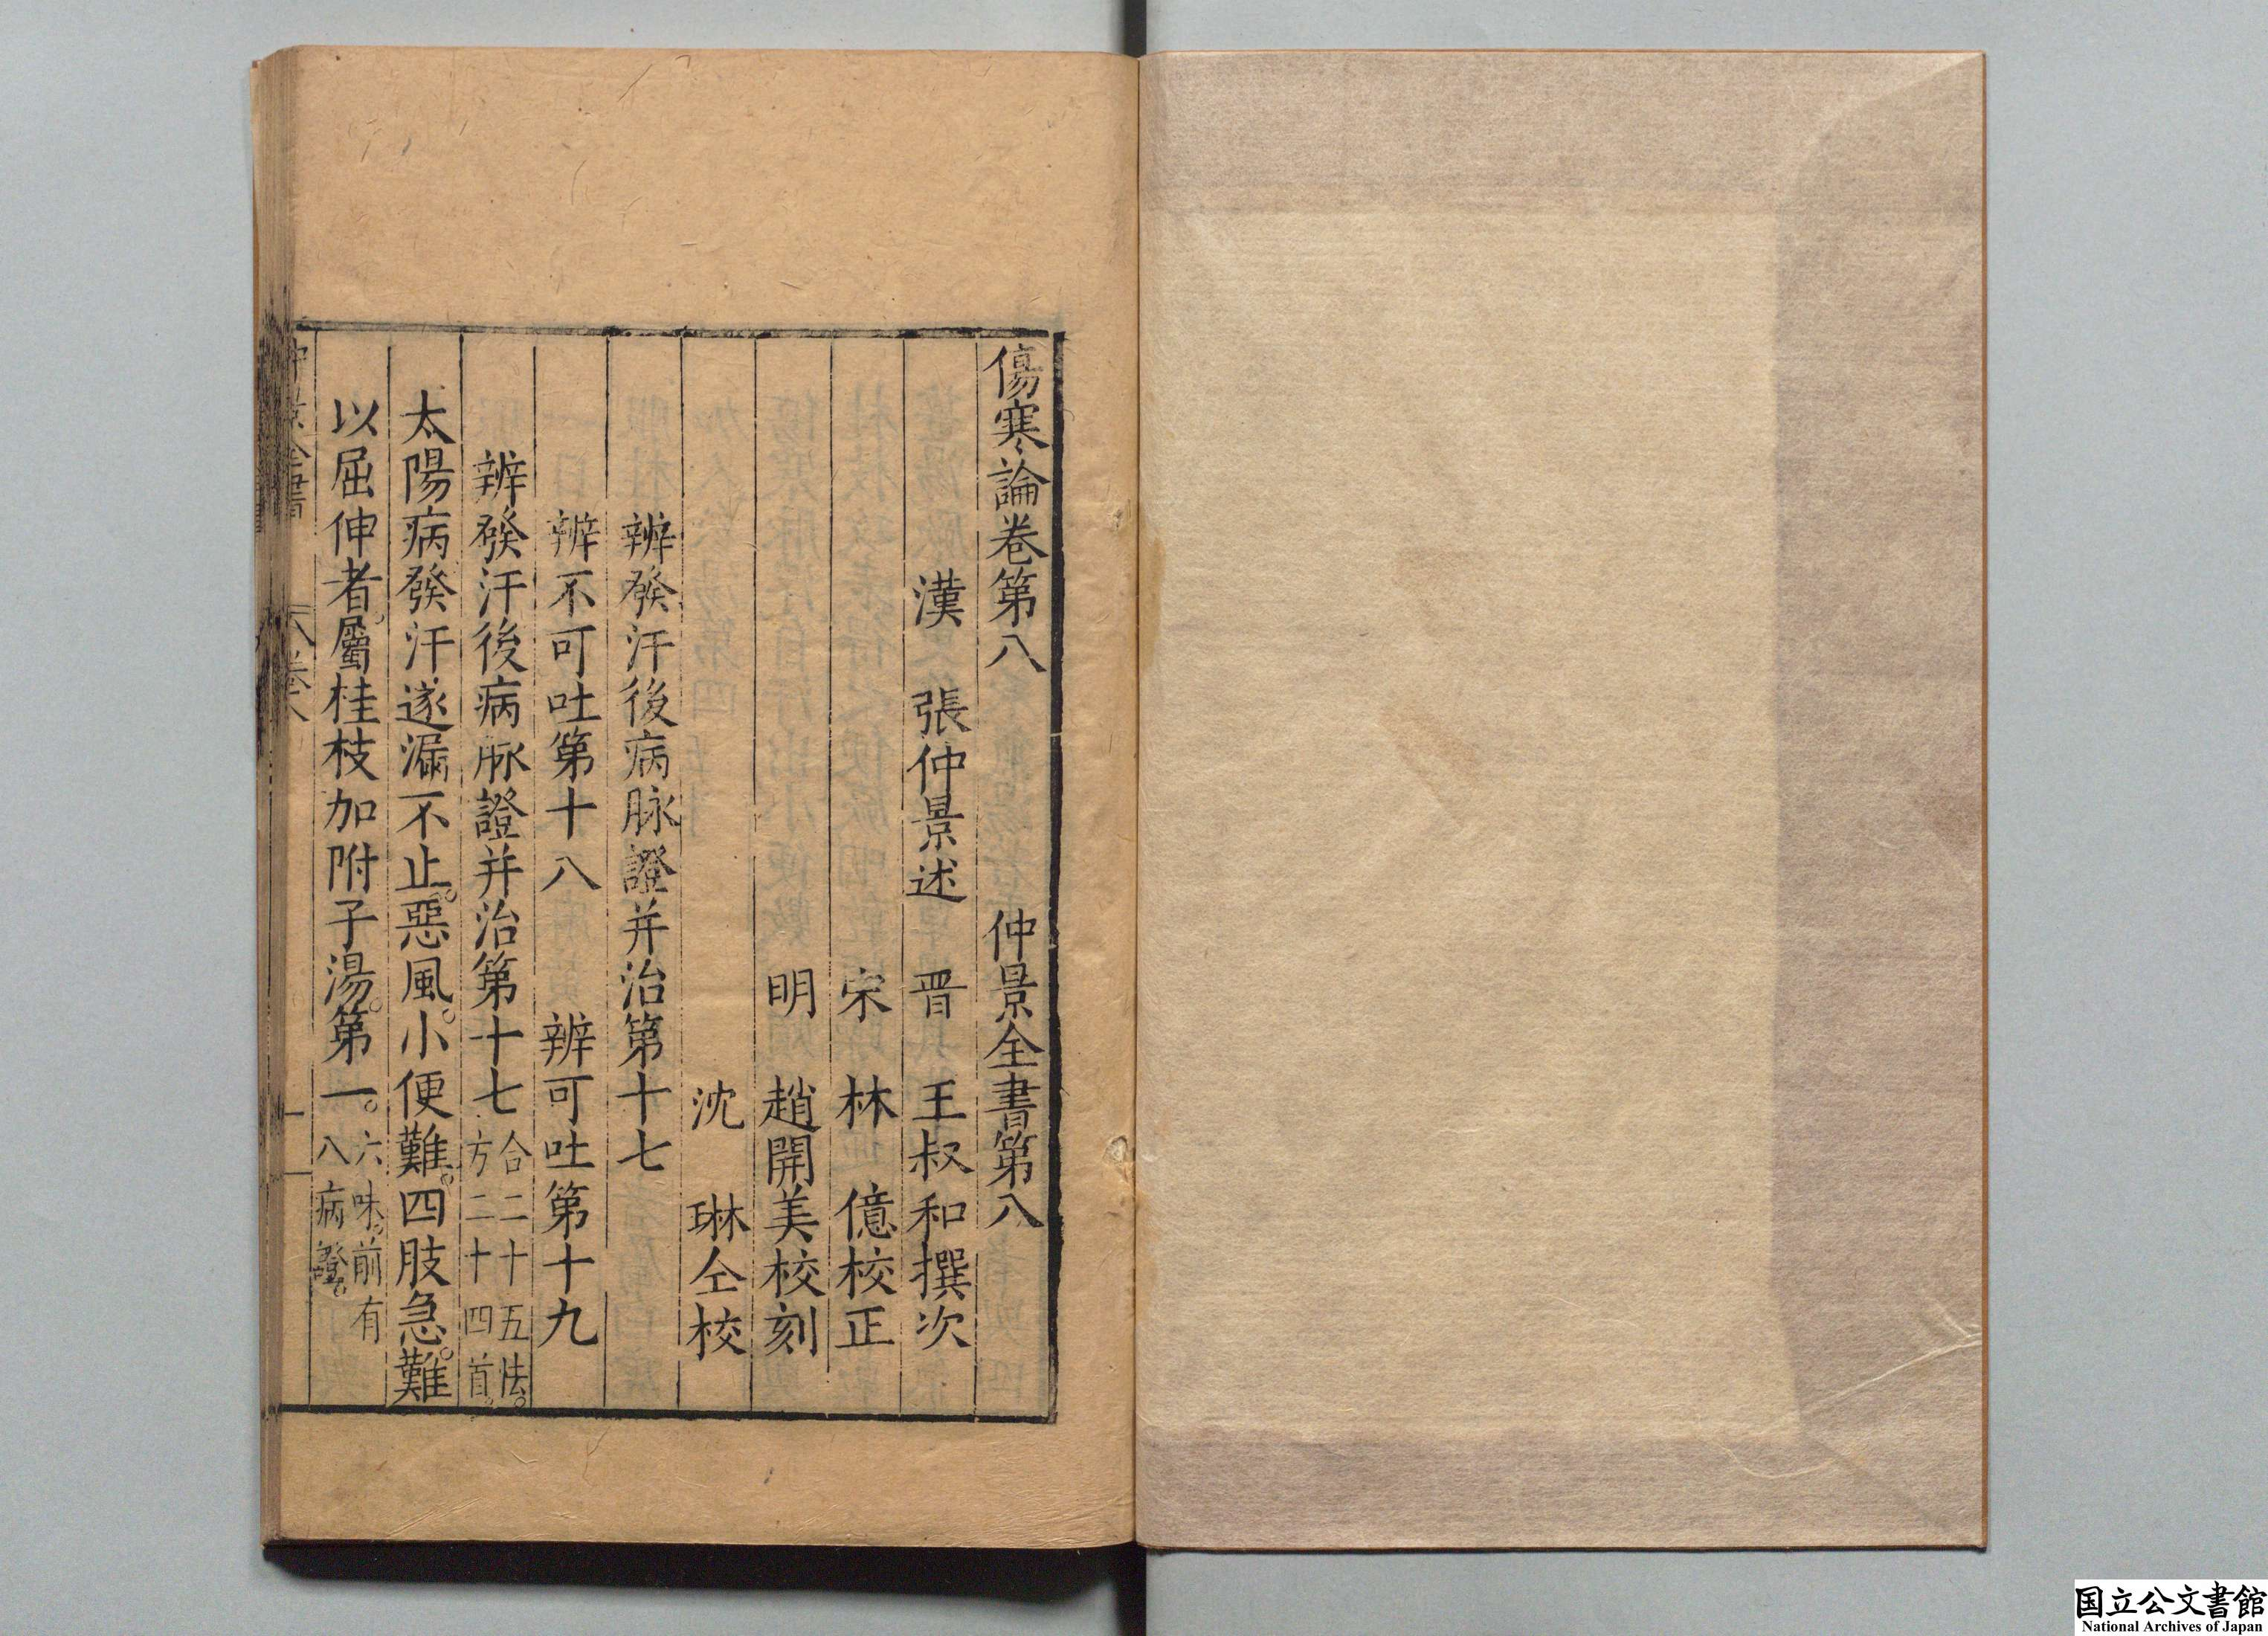 傷寒論卷第八　　　　仲景全書第八
漢　張仲景述　晋　王叔和撰次
宋　林　億校正
明　趙開美校刻
沈　琳仝校
辨發汗後病脉證并治第十七
辨不可吐第十八　　辨可吐第十九
辨發汗後病脉證并治第十七合二十五法。方二十四首。
太陽病發汗遂漏不止。惡風。小便難。四肢急。難
以屈伸者。屬桂枝加附子湯。第一。六味。前有八病證。
国立公文書館
National Archives of Japan